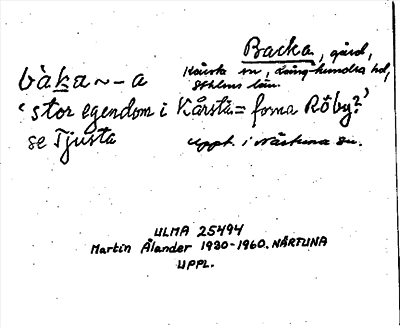 Backa, gård,
Kårsta sn, Långhundra hd,
Sthlms län.
bàka ~ – a
'stor egendom i Kårsta = forna Röby?'
se Tjusta
Uppt. i Närtuna sn.
ULMA 25494
Martin Ålander 1930-1960. NÄRTUNA
UPPL.